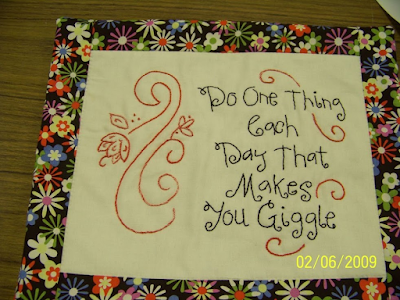 Do One Thing
Each
Day That
Makes
You Giggle
02/06/2009